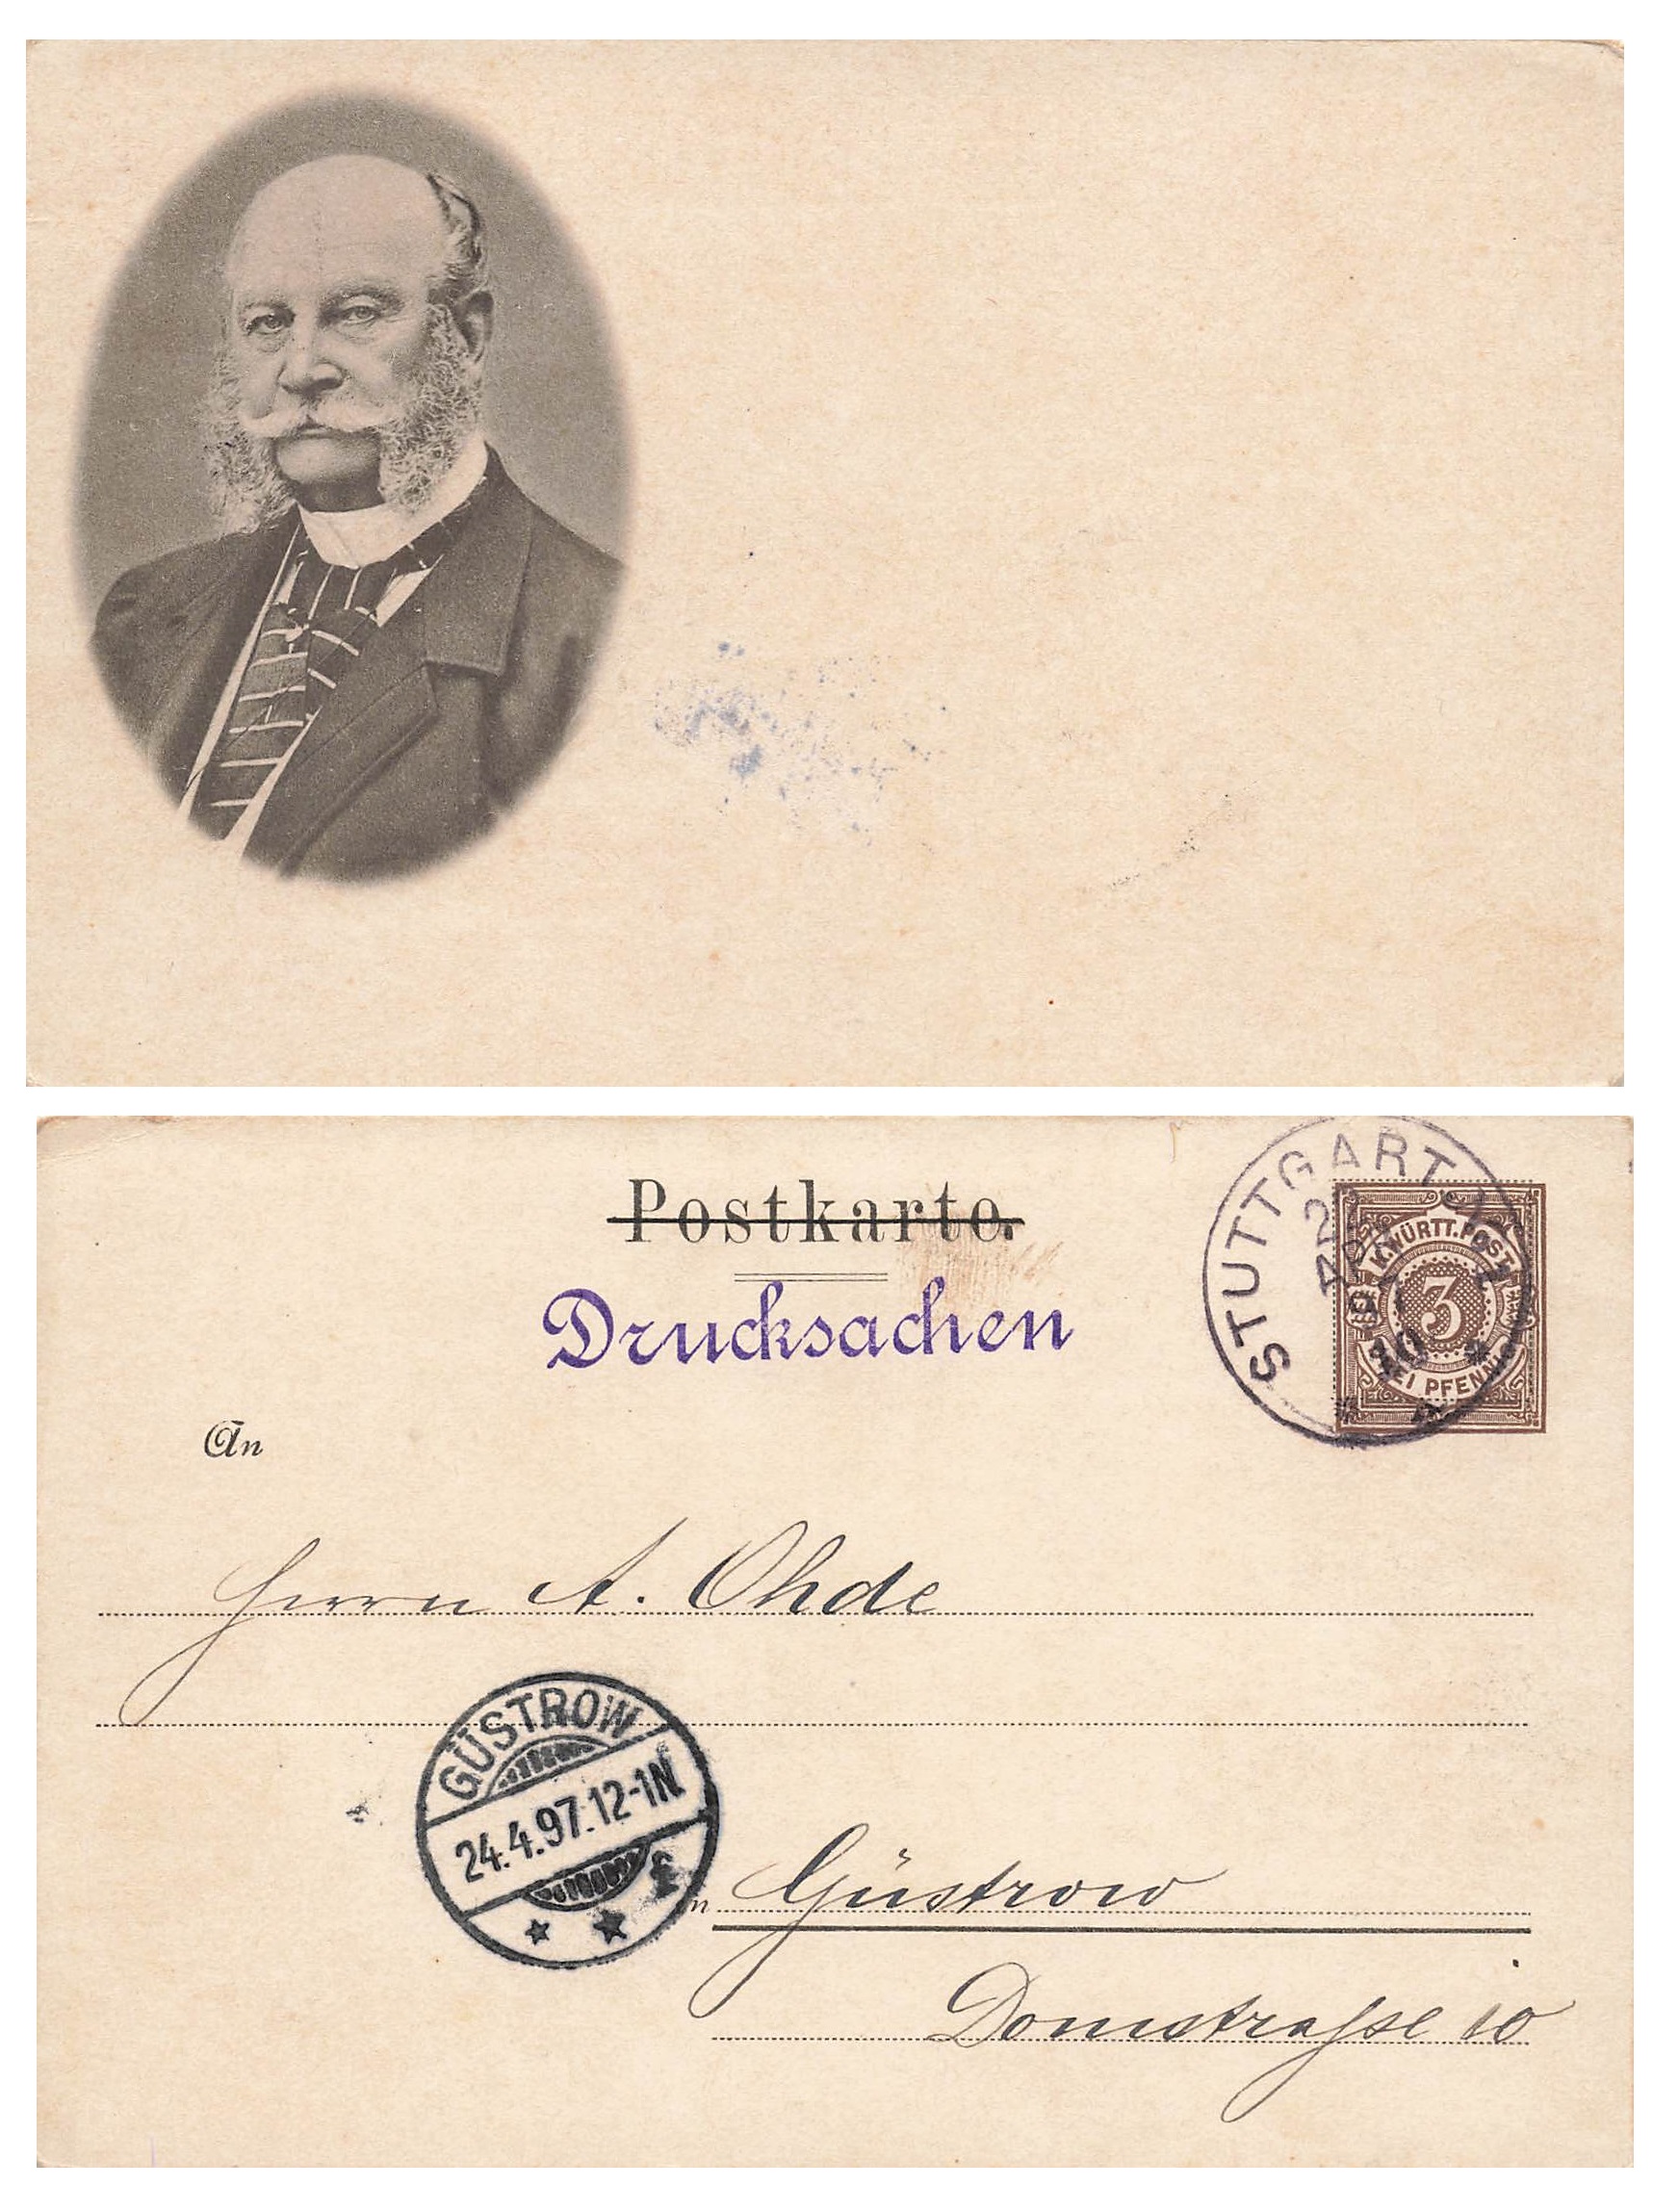 Postkarte.
Drucksachen
STUTTGART
K. WÜRTT. POST
3
DREI PFENNIG
An
Herrn A. Ohde
GÜSTROW
24.4.97.12-1N.
in Güstrow
Domstraſse 10